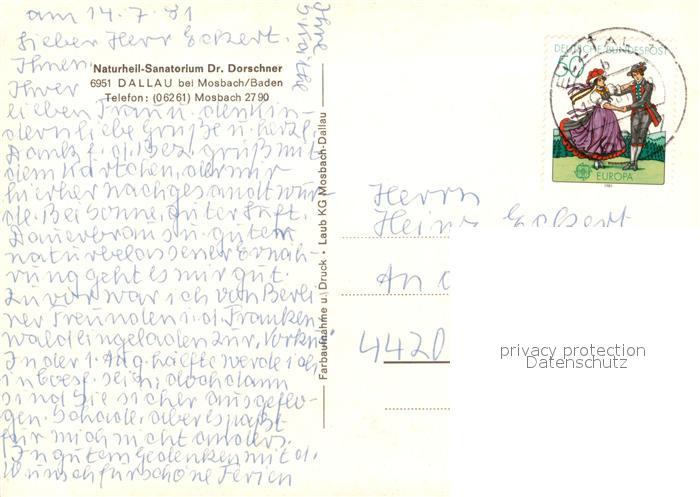 am 14.7.81
Lieber Herr Eckert.
Ihnen,
Ihrer
lieben Frau u. den Kin-
dern liebe Grüße u. herzl.
Dank f. d. bes. gruß mit
dem Kärtchen, der mir
hierher nachgesandt wur-
de. Bei Sonne, guter Luft,
u. gutem
naturbelassener Ernäh-
rung geht es mir gut.
Zuvor war ich von Berli-
ner Freunden i. d. Franken
wald eingeladen zur "Vorkur"
In der 1. Aug. hälfte werde ich
in sein, doch dann
sind Sie sicher ausgeflo-
gen. Schade, aber es paßt
für mich nicht anders.
In gutem Gedenken mit d.
Wunsch für schöne Ferien
Ihre
Naturheil-Sanatorium Dr. Dorschner
6951 DALLAU bei Mosbach/Baden
Telefon: (0 62 61) Mosbach 27 90
Farbaufnahme u. Druck • Laub KG Mosbach-Dallau
DEUTSCHE BUNDESPOST
EUROPA
1981
Herrn
Heinz Eckert
An d
4420
privacy protection
Datenschutz